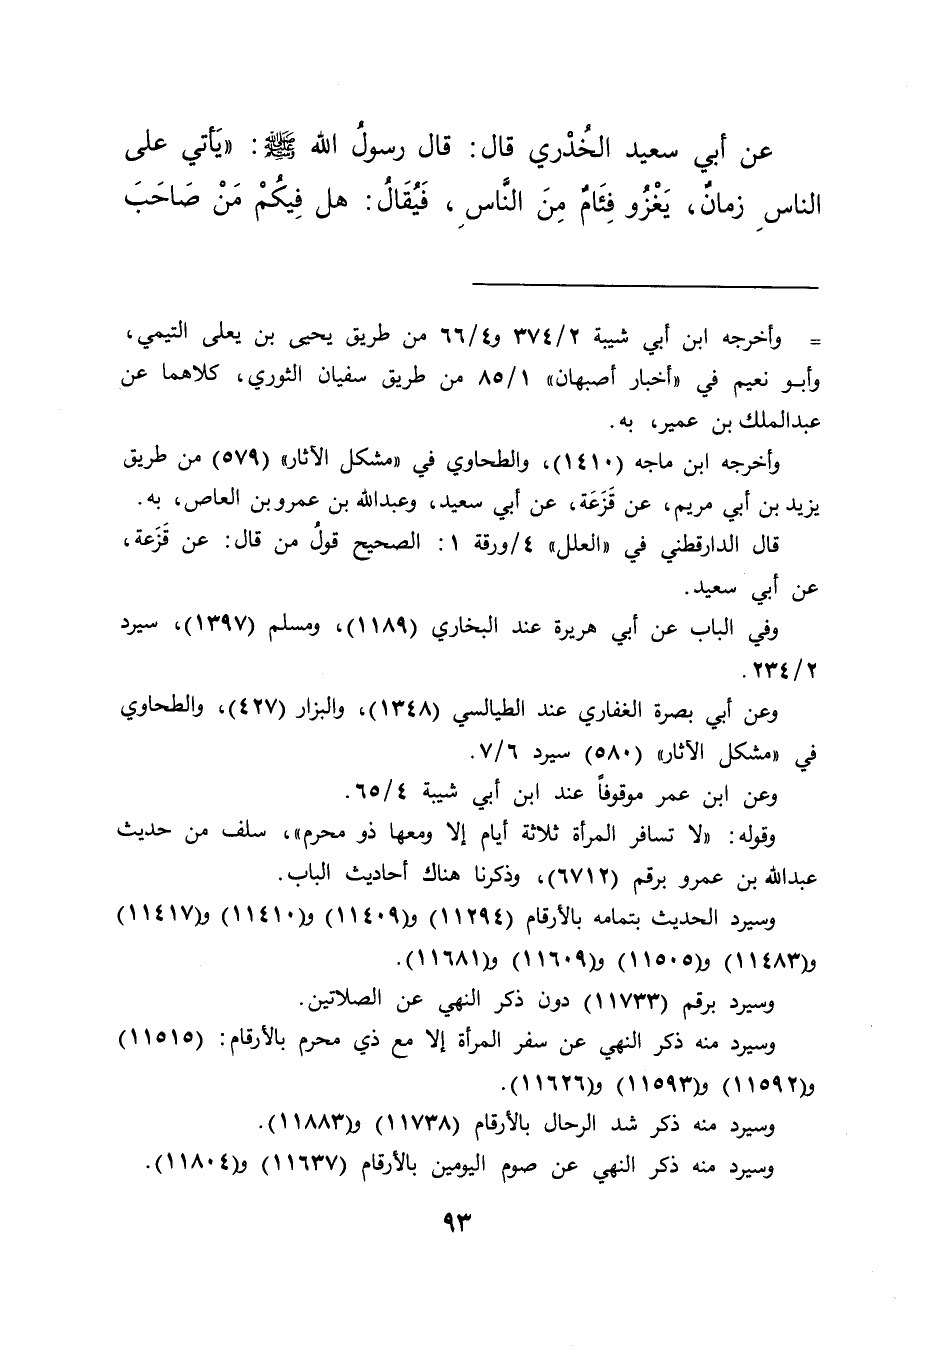 عن أبي سعيد الخُدْري قال: قال رسولُ الله ﷺ: «يَأتي على
الناسِ زمانٌ، يَغْزُو فِئَامٌ مِنَ النَّاسِ، فَيُقَالُ: هل فِيكُمْ مَنْ صَاحَبَ
= وأخرجه ابن أبي شيبة ٣٧٤/٢ و٦٦/٤ من طريق يحيى بن يعلى التيمي،
وأبو نعيم في «أخبار أصبهان» ٨٥/١ من طريق سفيان الثوري، كلاهما عن
عبدالملك بن عمير، به.
وأخرجه ابن ماجه (١٤١٠)، والطحاوي في «مشكل الآثار» (٥٧٩) من طريق
يزيد بن أبي مريم، عن قَزَعَة، عن أبي سعيد، وعبدالله بن عمرو بن العاص، به.
قال الدارقطني في «العلل» ٤/ورقة ١: الصحيح قولُ من قال: عن قَزَعة،
عن أبي سعيد.
وفي الباب عن أبي هريرة عند البخاري (١١٨٩)، ومسلم (١٣٩٧)، سيرد
٢٣٤/٢.
وعن أبي بصرة الغفاري عند الطيالسي (١٣٤٨)، والبزار (٤٢٧)، والطحاوي
في «مشكل الآثار» (٥٨٠) سيرد ٧/٦.
وعن ابن عمر موقوفاً عند ابن أبي شيبة ٦٥/٤.
وقوله: «لا تسافر المرأة ثلاثة أيام إلا ومعها ذو محرم»، سلف من حديث
عبدالله بن عمرو برقم (٦٧١٢)، وذكرنا هناك أحاديث الباب.
وسيرد الحديث بتمامه بالأرقام (١١٢٩٤) و(١١٤٠٩) و(١١٤١٠) و(١١٤١٧)
و(١١٤٨٣) و(١١٥٠٥) و(١١٦٠٩) و(١١٦٨١).
وسيرد برقم (١١٧٣٣) دون ذكر النهي عن الصلاتين.
وسيرد منه ذكر النهي عن سفر المرأة إلا مع ذي محرم بالأرقام: (١١٥١٥)
و(١١٥٩٢) و(١١٥٩٣) و(١١٦٢٦).
وسيرد منه ذكر شد الرحال بالأرقام (١١٧٣٨) و(١١٨٨٣).
وسيرد منه ذكر النهي عن صوم اليومين بالأرقام (١١٦٣٧) و(١١٨٠٤).
٩٣